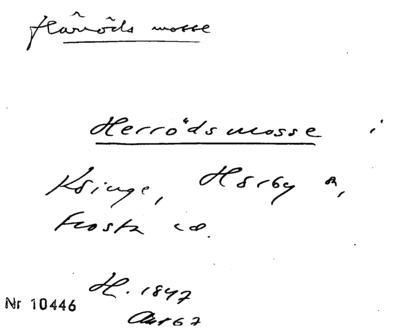 Härröds mosse
Herröds mosse i
Kainge, Hörby sn,
Frosta co.
H. 1847
Nr 10446